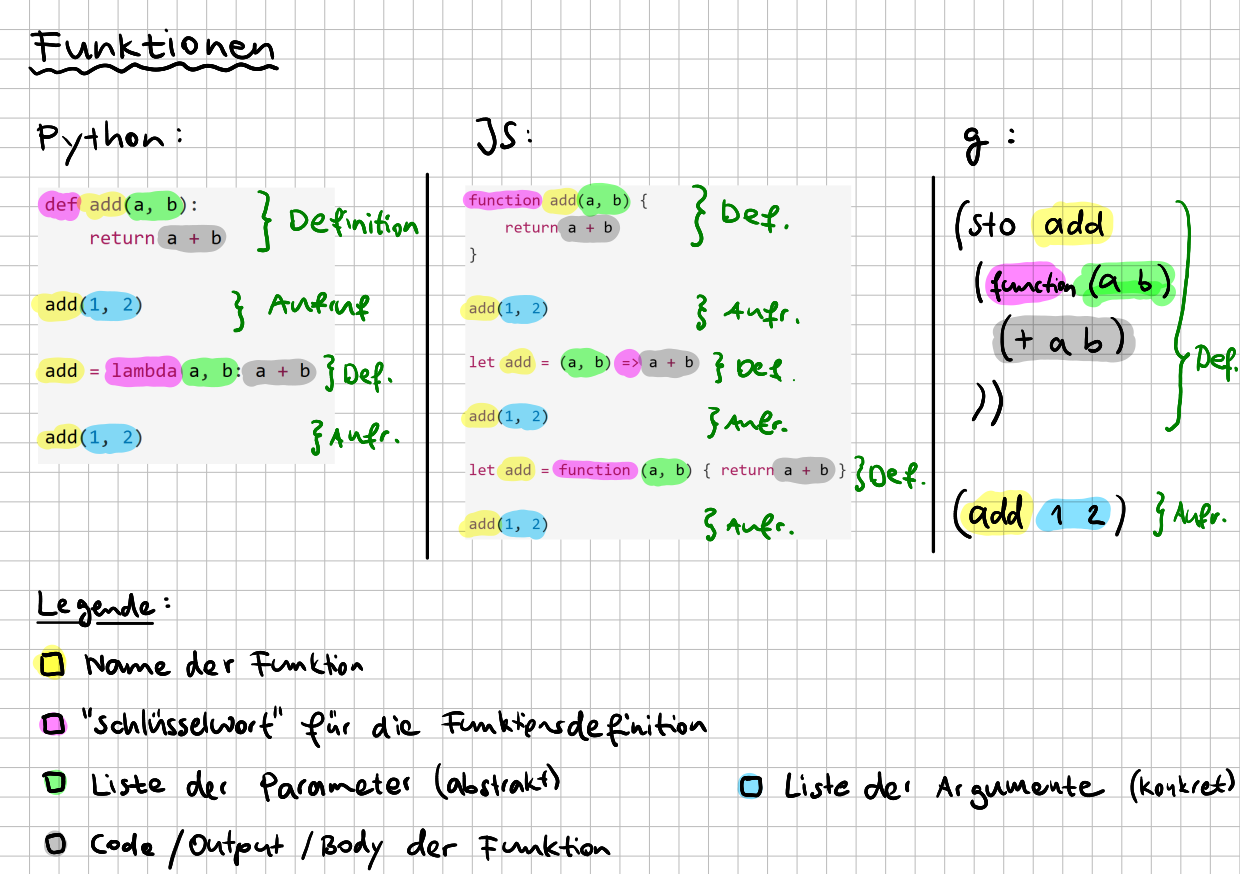 Funktionen
Python:
def add(a, b):
return a + b
} Definition
add(1, 2)
} Aufruf
add = lambda a, b: a + b
} Def.
add(1, 2)
} Aufr.
JS:
function add(a, b) {
return a + b
}
} Def.
add(1, 2)
} Aufr.
let add = (a, b) => a + b
} Def.
add(1, 2)
} Aufr.
let add = function (a, b) { return a + b }
} Def.
add(1, 2)
} Aufr.
g:
(sto add
(function (a b)
(+ a b)
))
} Def.
(add 1 2)
} Aufr.
Legende:
Name der Funktion
"Schlüsselwort" für die Funktionsdefinition
Liste der Parameter (abstrakt)
Liste der Argumente (konkret)
Code / Output / Body der Funktion